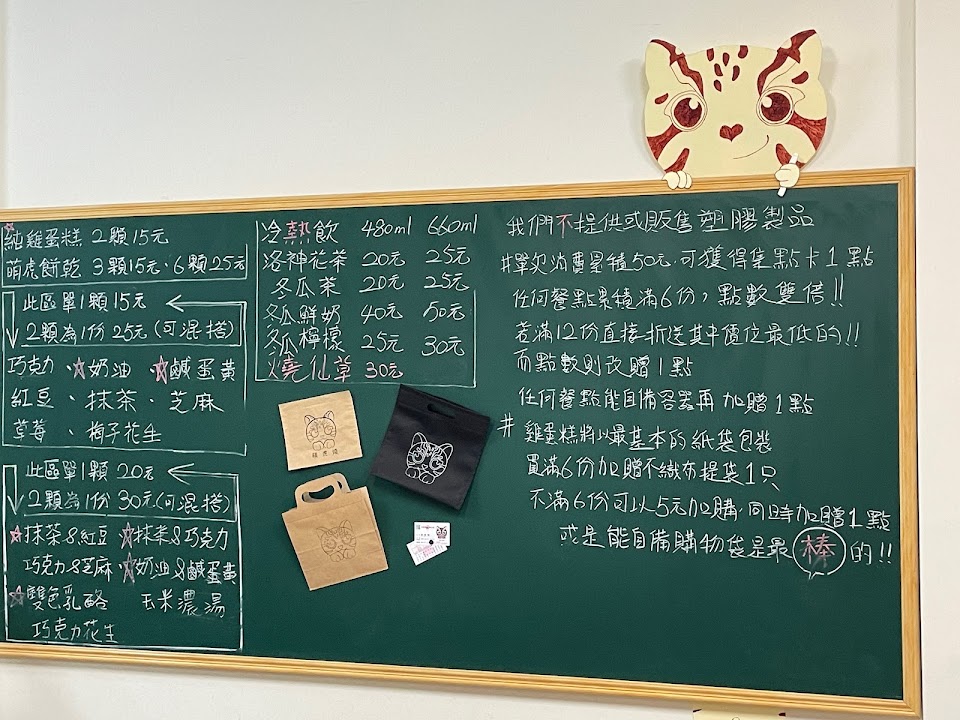 純雞蛋糕 2顆15元
萌虎餅乾 3顆15元、6顆25元
此區單1顆15元
2顆為1份 25元(可混搭)
巧克力、☆奶油、☆鹹蛋黃
紅豆、抹茶、芝麻
草莓、椰子花生
此區單1顆 20元
2顆為1份 30元(可混搭)
☆抹茶&紅豆 ☆抹茶&巧克力
巧克力&芝麻 ☆奶油&鹹蛋黃
☆雙色乳酪 玉米濃湯
巧克力花生
冷熱飲 480ml 660ml
洛神花茶 20元 25元
冬瓜茶 20元 25元
冬瓜鮮奶 40元 50元
冬瓜檸檬 25元 30元
燒仙草 30元
我們不提供或販售塑膠製品
#單次消費累積50元,可獲得集點卡1點
任何餐點累積滿6份,點數雙倍!!
若滿12份直接折送其中價位最低的!!
而點數則改贈1點
任何餐點能自備容器再加贈1點
# 雞蛋糕將以最基本的紙袋包裝
買滿6份加贈不織布提袋1只
不滿6份可以5元加購,同時加贈1點
或是能自備購物袋是最棒的!!